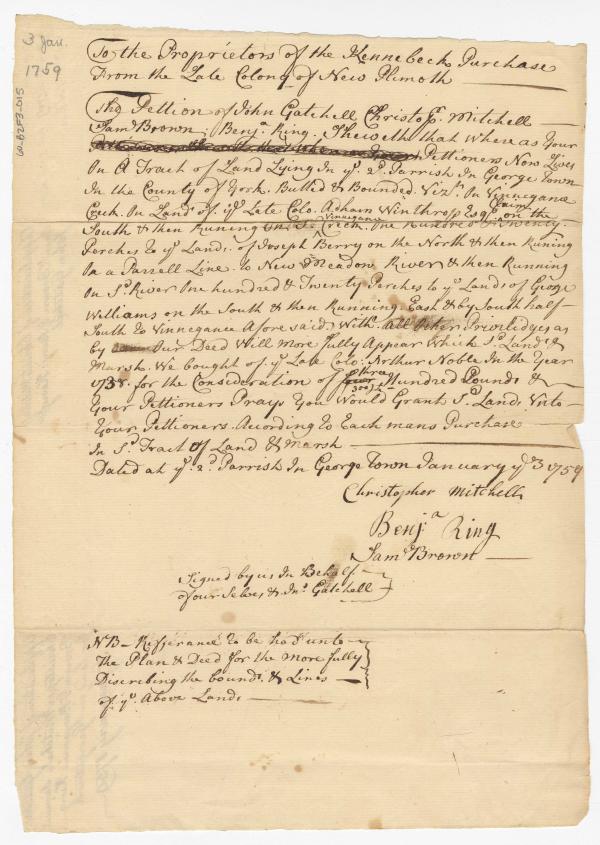 3 Jan.
1759
W-B2F3-015
To the Proprietors of the Kennebeck Purchase
From the Late Colony of New Plimoth
The Pettion of John Gatchell Christor. Mitchell
Saml Brown; Benja. King. Sheweth that where as Your
Petitioners Now Lives
On A Tract of Land Lying In ye. 2d. Parrish In George Town
In the County of York. Butted & Bounded. Vizt. On Vinnegance
Creek. On Lands of ye Late Colo. Adham Winthrop Esqr. Claim on the
South & then Runing on Sd. Vinnegance Creek. One Hundred & Twenty
Perches to ye Lands. of Joseph Berry on the North & then Runing
On a Parrell Line to New Meadow River & then Running
On Sd. River One hundred & Twenty Perches to ye Lands of George
Williams on the South & then Running East & by South half
South to Vinnegance Afore said, With All Other Priviledges as
by Our Deed Will More fully Appear Which Sd. Lands &
Marsh. We bought of ye Late Colo. Arthur Noble In the Year
1738. for the Consideration of three 300 Hundred Pounds &
Your Pettioners Prays You Would Grant Sd. Land. Unto
Your Pettioners. Acording to Each mans Purchase
In Sd. Tract of Land & Marsh
Dated at ye. 2d. Parrish In George Town January ye 3 1759
Christopher Mitchell
Benja King
Saml Brown
Signed by us In Behalf
of our Selves & Jno. Gatchell
NB - Refferance to be had unto
The Plan & Deed for the More fully
Discribing the bounds & Lines
of ye. Above Lands